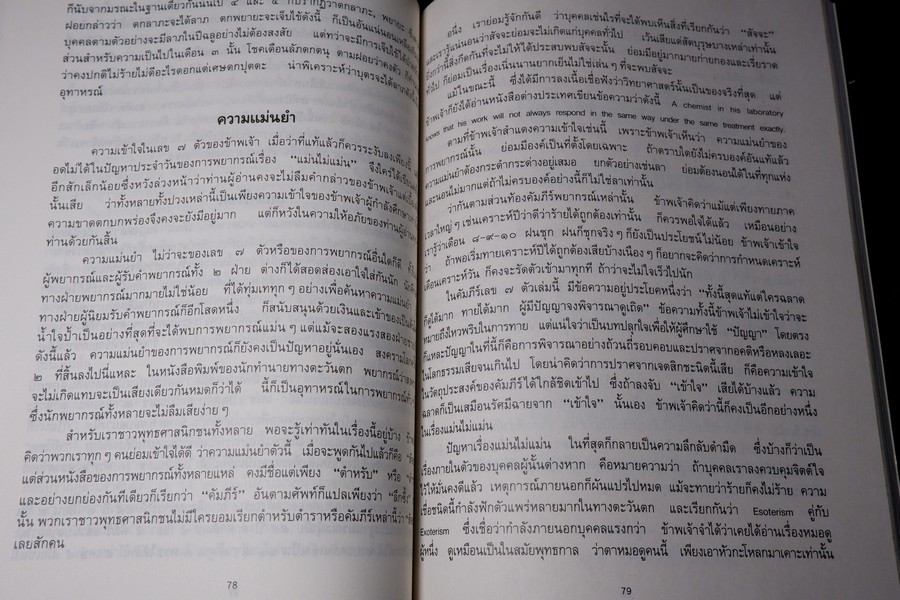 ก็นับจากมรณะในฐานเดียวกันนั้นไป ๔ และ ๕
ฝอยกล่าวว่า ตกลาภะจะได้ลาภ ตกพยายะจะเจ็บไข้ดังนี้ ก็เป็นอันแน่นอน
บุคคลตามตัวอย่างจะมีลาภในปีฉลูอย่างไม่ต้องสงสัย แต่ทว่าจะมีการเจ็บไข้
ส่วนสำหรับความเป็นไปในเดือน ๓ นั้น โชคเดือนลัภตกตนุ ตามฝอยว่าคงตัว
ว่าคงปกติไม่ร้ายไม่ดีอะไรดอกแต่เศษตกปุตตะ น่าพิเคราะห์ว่าบุตรจะได้ลาภ
อุทาหรณ์
ความแม่นยำ
ความเข้าใจในเลข ๗ ตัวของข้าพเจ้า เมื่อว่าที่แท้แล้วก็ควรระงับลงเพียง
อดไม่ได้ในปัญหาประจำวันของการพยากรณ์เรื่อง “แม่นไม่แม่น” จึงใคร่ได้
อีกสักเล็กน้อยซึ่งหวังล่วงหน้าว่าท่านผู้อ่านคงจะไม่ลืมคำกล่าวของข้าพเจ้า
นั้นเสีย ว่าทั้งหลายทั้งปวงเหล่านี้เป็นเพียงความเข้าใจของข้าพเจ้าผู้กำลังศึกษา
ความขาดตกบกพร่องจึงคงจะยังมีอยู่มาก แต่ก็หวังในความให้อภัยของท่านผู้อ่าน
ท่านด้วยกันสิ้น
ความแม่นยำ ไม่ว่าจะของเลข ๗ ตัวหรือของการพยากรณ์อื่นใดก็ดี
ผู้พยากรณ์และผู้รับคำพยากรณ์ทั้ง ๒ ฝ่าย ต่างก็ได้สอดส่องเอาใจใส่กันนัก
ทางฝ่ายพยากรณ์มากมายไม่ใช่น้อย ที่ได้ทุ่มเททุก ๆ อย่างเพื่อค้นหาความแม่นยำ
ทางฝ่ายผู้นิยมรับคำพยากรณ์ก็อีกโสดหนึ่ง ก็สนับสนุนด้วยเงินและเข้าของเป็น
น้ำใจไป้ำเป็นอย่างที่สุดที่จะได้พบการพยากรณ์แม่น ๆ แต่แม้จะสองแรงสองฝ่าย
ดังนี้แล้ว ความแม่นยำของการพยากรณ์ก็ยังคงเป็นปัญหาอยู่นั่นเอง สงครามโลก
๒ ที่สิ้นลงไปนี่แหละ ในหนังสือพิมพ์ของนักทำนายทางตะวันตก พยากรณ์ว่า
จะไม่เกิดแทบจะเป็นเสียงเดียวกันหมดก็ว่าได้ นี้ก็เป็นอุทาหรณ์ในการพยากรณ์
ซึ่งนักพยากรณ์ทั้งหลายจะไม่ลืมเสียง่าย ๆ
สำหรับเราชาวพุทธศาสนิกชนทั้งหลาย พอจะรู้เท่าทันในเรื่องนี้อยู่บ้าง
คิดว่าพวกเราทุก ๆ คนย่อมเข้าใจได้ดี ว่าความแม่นยำตัวนี้ เมื่อจะพูดกันไปแล้วก็คือ
แต่ส่วนหนังสือของการพยากรณ์ทั้งหลายแหล่ คงมีชื่อแต่เพียง “ตำหรับ” หรือ
และอย่างยกย่องกันทีเดียวก็เรียกว่า “คัมภีร์” อันตามศัพท์ก็แปลเพียงว่า “ลึกซึ้ง”
นั้น พวกเราชาวพุทธศาสนิกชนไม่มีใครยอมเรียกตำหรับตำราหรือคัมภีร์เหล่านี้ว่า
เลยสักคน
78
อนึ่ง เราย่อมรู้จักกันดี ว่าบุคคลเช่นไรที่จะได้พบเห็นสิ่งที่เรียกกันว่า “สัจจะ”
และเรารู้แน่นอนว่าสัจจะย่อมจะไม่เกิดแก่บุคคลทั่วไป เว้นเสียแต่สัตบุรุษบางเหล่าเท่านั้น
ยิ่งกว่านี้สิ่งกีดกันที่จะไม่ให้ได้ประสบพบสัจจะนั้น ย่อมมีอยู่มากมายก่ายกองและเรี่ยราด
ทั่วไป ก็ย่อมเป็นเรื่องเนิ่นนานยากเย็นไม่ใช่เล่น ๆ ที่จะพบสัจจะ
แม้ในขณะนี้ ซึ่งได้มีการลงเนื้อเชื่อฟังว่าวิทยาศาสตร์นั้นเป็นของจริงที่สุด แต่
ข้าพเจ้าก็ยังได้อ่านหนังสือต่างประเทศเขียนข้อความว่าดังนี้ A chemist in his laboratory
knows that his work will not always respond in the same way under the same treatment exactly.
ตามที่ข้าพเจ้าสำแดงความเข้าใจเช่นนี้ เพราะข้าพเจ้าเห็นว่า ความแม่นยำของ
การพยากรณ์นั้น ย่อมมีองค์เป็นที่ตั้งโดยเฉพาะ ถ้าตราบใดยังไม่ครบองค์อันแท้แล้ว
ความแม่นยำต้องกระดำกระด่างอยู่เสมอ ยกตัวอย่างเช่นลา ย่อมต้องนอนได้ในที่ทุกแห่ง
และนอนไม่มากแต่ถ้าไม่ครบองค์อย่างนี้ก็ไม่ใช่ลาเท่านั้น
ว่ากันตามส่วนท้องคัมภีร์พยากรณ์เหล่านั้น ข้าพเจ้าคิดว่าแม้แต่เพียงทายภาค
เวลาใหญ่ ๆ เช่นเคราะห์ปีว่าดีว่าร้ายได้ถูกต้องเท่านั้น ก็ควรพอใจได้แล้ว เหมือนอย่าง
เรารู้ว่าเดือน ๘-๙-๑๐ ฝนชุก ฝนก็ชุกจริง ๆ ก็ยังเป็นประโยชน์ไม่น้อย ข้าพเจ้าเข้าใจ
ว่า ถ้าพอเริ่มทายเคราะห์ปีได้ถูกต้องเสียบ้างเนือง ๆ ก็อยากจะคิดว่าการกำหนดเคราะห์
เดือนเคราะห์วัน ก็คงจะรัดตัวเข้ามาทุกที ถ้าว่าจะไม่ใจเร็วไปนัก
ในคัมภีร์เลข ๗ ตัวเล่มนี้ มีข้อความอยู่ประโยคหนึ่งว่า “ทั้งนี้สุดแท้แต่ใครฉลาด
ก็ดูได้มาก ทายได้มาก ผู้มีปัญญาจงพิจารณาดูเถิด” ข้อความทั้งนี้ข้าพเจ้าไม่เข้าใจว่าจะ
หมายถึงไหวพริบในการทาย แต่แน่ใจว่าเป็นบทปลุกใจเพื่อให้ผู้ศึกษาใช้ “ปัญญา” โดยตรง
ก็แหละปัญญาในที่นี้ก็คือการพิจารณาอย่างถ้วนถี่รอบคอบและปราศจากอคติหรือหลงเลอะ
ในโลกธรรมเสียจนเกินไป โดยน่าคิดว่าการปราศจากเจตสิกชะนิดนี้เสีย ก็คือความเข้าใจ
ในวัตถุประสงค์ของคัมภีร์ได้ใกล้ชิดเข้าไป ซึ่งถ้าลงจับ “เข้าใจ” เสียได้บ้างแล้ว ความ
ฉลาดก็เป็นเหมือนรัศมีฉายจาก “เข้าใจ” นั้นเอง ข้าพเจ้าคิดว่านี้ก็คงเป็นอีกอย่างหนึ่ง
ในเรื่องแม่นไม่แม่น
ปัญหาเรื่องแม่นไม่แม่น ในที่สุดก็กลายเป็นความลึกลับดำมืด ซึ่งบ้างก็ว่าเป็น
เรื่องภายในตัวของบุคคลผู้นั้นต่างหาก คือหมายความว่า ถ้าบุคคลเราลงควบคุมจิตต์ใจ
ไว้ให้มั่นคงดีแล้ว เหตุการณ์ภายนอกก็ผันแปรไปหมด แม้จะทายว่าร้ายก็คงไม่ร้าย ความ
เชื่อชนิดนี้กำลังฟักตัวแพร่หลายมากในทางตะวันตก และเรียกกันว่า Esoterism คู่กับ
Exoterism ซึ่งเชื่อว่ากำลังภายนอกบุคคลแรงกว่า ข้าพเจ้าจำได้ว่าเคยได้อ่านเรื่องหมอดู
ผู้หนึ่ง ดูเหมือนเป็นในสมัยพุทธกาล ว่าตาหมอดูคนนี้ เพียงเอาหัวกะโหลกมาเคาะเท่านั้น
79